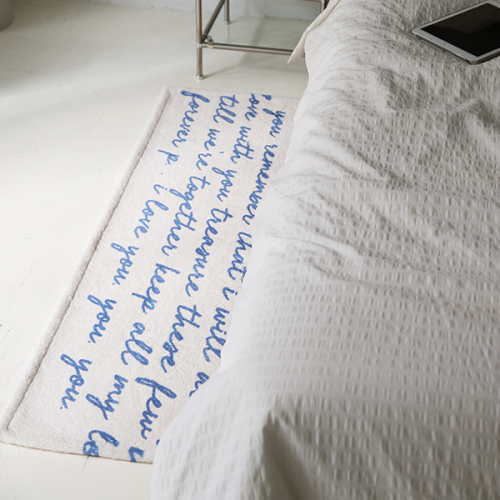 you remember that i will
love with you treasure these few
till we're together keep all my
forever p. i love you, you, you.